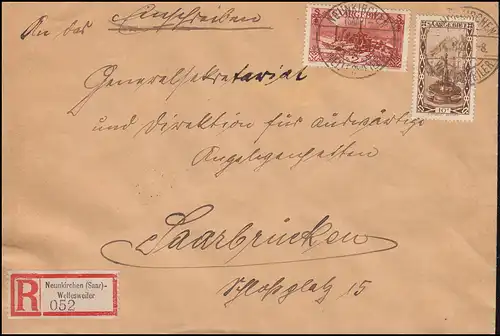 An das Einschreiben
Generalsekretariat
und Direktion für auswärtige
Angelegenheiten
Saarbrücken
Schloßplatz 15
SAARGEBIET
SAARGEBIET
10
R
Neunkirchen (Saar)-
Wellesweiler
052